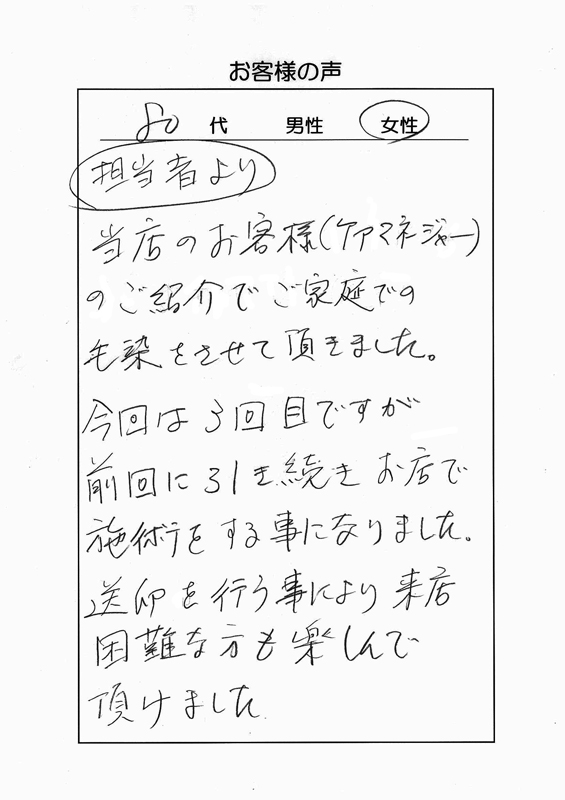 お客様の声
80 代 男性 女性
担当者より
当店のお客様(ケアマネジャー)
のご紹介でご家庭での
毛染をさせて頂きました。
今回は3回目ですが
前回に引き続きお店で
施術をする事になりました。
送迎を行う事により来店
困難な方も楽しんで
頂けました